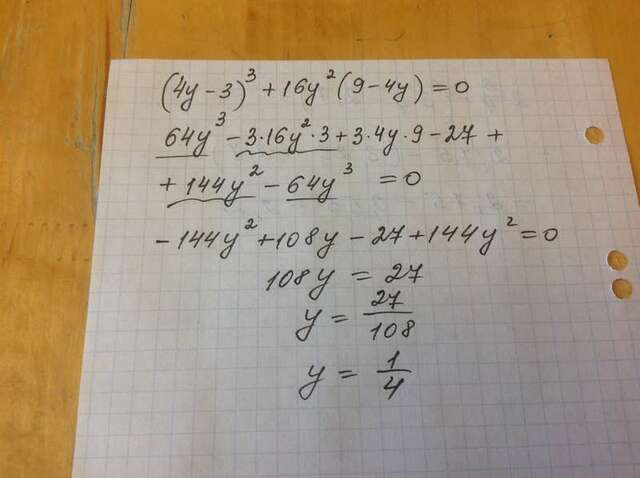 (4y-3)³+16y²(9-4y)=0
64y³-3·16y²·3+3·4y·9-27+
+144y²-64y³=0
-144y²+108y-27+144y²=0
108y=27
y=27/108
y=1/4